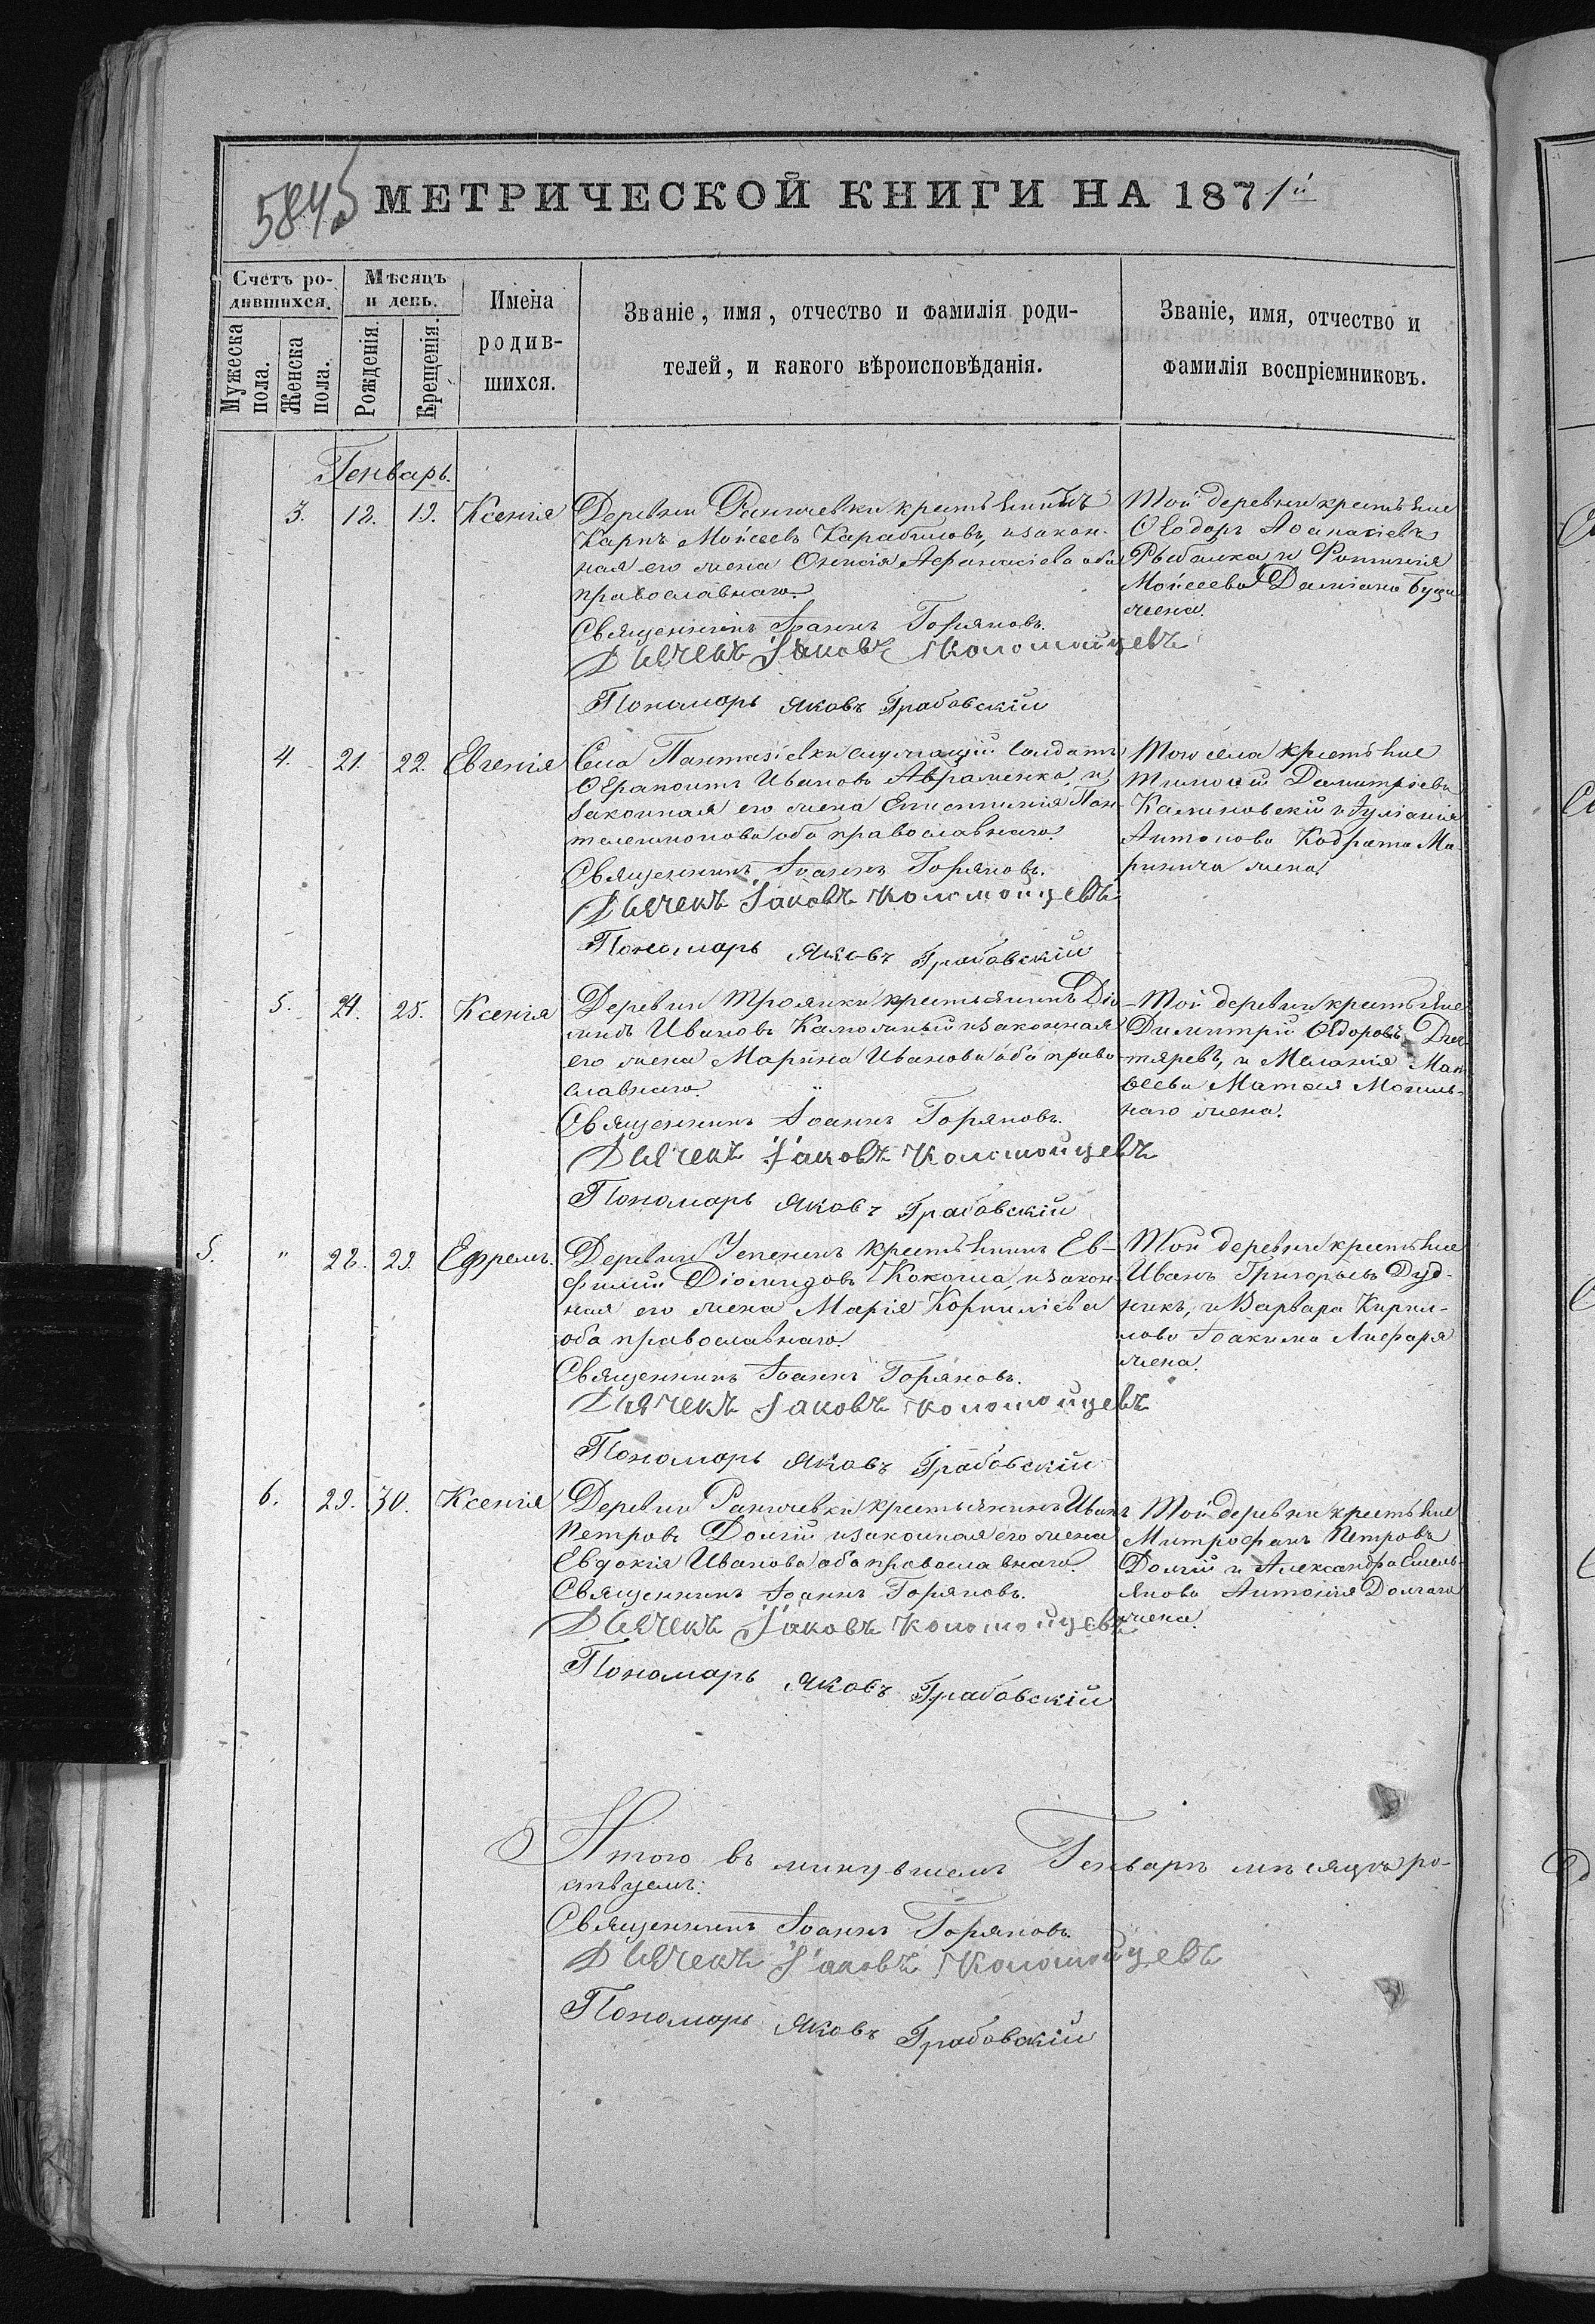 5845
МЕТРИЧЕСКОЙ КНИГИ НА 1871й
Счетъ ро-
дившихся.
Мѣсяцъ
и день.
Имена
родив-
шихся.
Званіе, имя, отчество и фамилія роди-
телей, и какого вѣроисповѣданія.
Званіе, имя, отчество и
фамилія воспріемниковъ.
Мужеска
пола.
Женска
пола.
Рожденія.
Крещенія.
Генварь.
3. 18. 19. Ксенія
Деревни крестьянинъ
Карпъ Мойсеевъ и закон-
ная его жена Афанасіева оба
православнаго.
Священникъ Іоаннъ Горяновъ.
Дьячекъ Іаковъ Коломойцевъ
Пономарь Яковъ Грабовскій
Той деревни крестьяне
Ѳеодоръ Аѳанасіевъ
Рыбалка и Фотинія
Мойсеева Даміана
жена.
4. 21. 22. Евгенія
Села Пантазіевки служащій солдатъ
Иванов Авраменко, и
законная его жена Епистимія Пан-
телеимонова оба православнаго.
Священникъ Іоаннъ Горяновъ.
Дьячекъ Іаковъ Коломойцевъ
Пономарь Яковъ Грабовскій
Того села крестьяне
Тимоѳей Димитріевъ
Калиновскій и Іуліанія
Антонова Кодрата Ма-
ринича жена.
5. 24. 25. Ксенія
Деревни Троянки крестьянинъ Діо-
мидъ Ивановъ и законная
его жена Марина Иванова оба право-
славнаго.
Священникъ Іоаннъ Горяновъ.
Дьячекъ Іаковъ Коломойцевъ
Пономарь Яковъ Грабовскій
Той деревни крестьяне
Димитрій Ѳедоровъ Дех-
тяревъ, и Меланія Мат-
ѳеева Матѳея Могиль-
наго жена.
5. " 28. 29. Ефремъ.
Деревни крестьянинъ Ев-
фимій Діомидовъ Кокоша, и закон-
ная его жена Марія Корниліева
оба православнаго.
Священникъ Іоаннъ Горяновъ.
Дьячекъ Іаковъ Коломойцевъ
Пономарь Яковъ Грабовскій
Той деревни крестьяне
Иванъ Григорьевъ Дуд-
никъ, и Варвара Кирил-
лова Іоакима Лисфаря
жена.
6. 29. 30. Ксенія
Деревни крестьянинъ Иванъ
Петровъ Долгій и законная его жена
Евдокія Иванова оба православнаго.
Священникъ Іоаннъ Горяновъ.
Дьячекъ Іаковъ Коломойцевъ
Пономарь Яковъ Грабовскій
Той деревни крестьяне
Митрофанъ Петровъ
Долгій и Александра Емель-
янова Антонія Долгаго
жена.
Итого въ минувшемъ Генварѣ мѣсяцѣ ро-
Священникъ Іоаннъ Горяновъ.
Дьячекъ Іаковъ Коломойцевъ
Пономарь Яковъ Грабовскій